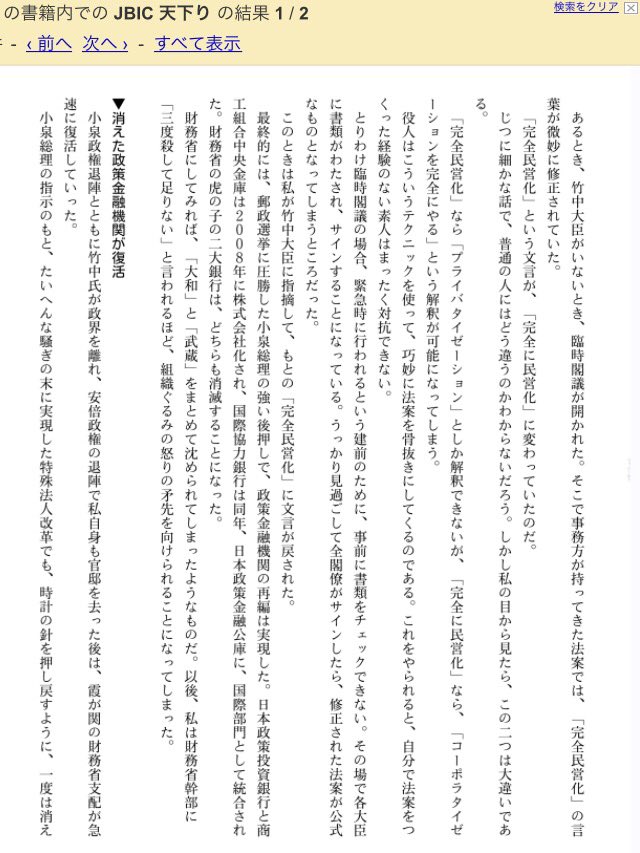 の書籍内での JBIC 天下り の結果 1 / 2
検索をクリア
- ‹ 前へ 次へ › - すべて表示
あるとき、竹中大臣がいないとき、臨時閣議が開かれた。そこで事務方が持ってきた法案では、「完全民営化」の言
葉が微妙に修正されていた。
「完全民営化」という文言が、「完全に民営化」に変わっていたのだ。
じつに細かな話で、普通の人にはどう違うのかわからないだろう。しかし私の目から見たら、この二つは大違いであ
る。
「完全民営化」なら「プライバタイゼーション」としか解釈できないが、「完全に民営化」なら、「コーポラタイゼ
ーションを完全にやる」という解釈が可能になってしまう。
役人はこういうテクニックを使って、巧妙に法案を骨抜きにしてくるのである。これをやられると、自分で法案をつ
くった経験のない素人はまったく対抗できない。
とりわけ臨時閣議の場合、緊急時に行われるという建前のために、事前に書類をチェックできない。その場で各大臣
に書類がわたされ、サインすることになっている。うっかり見過ごして全閣僚がサインしたら、修正された法案が公式
なものとなってしまうところだった。
このときは私が竹中大臣に指摘して、もとの「完全民営化」に文言が戻された。
最終的には、郵政選挙に圧勝した小泉総理の強い後押しで、政策金融機関の再編は実現した。日本政策投資銀行と商
工組合中央金庫は2008年に株式会社化され、国際協力銀行は同年、日本政策金融公庫に、国際部門として統合され
た。財務省の虎の子の二大銀行は、どちらも消滅することになった。
財務省にしてみれば、「大和」と「武蔵」をまとめて沈められてしまったようなものだ。以後、私は財務省幹部に
「三度殺して足りない」と言われるほど、組織ぐるみの怒りの矛先を向けられることになってしまった。
▼消えた政策金融機関が復活
小泉政権退陣とともに竹中氏が政界を離れ、安倍政権の退陣で私自身も官邸を去った後は、霞が関の財務省支配が急
速に復活していった。
小泉総理の指示のもと、たいへんな騒ぎの末に実現した特殊法人改革でも、時計の針を押し戻すように、一度は消え